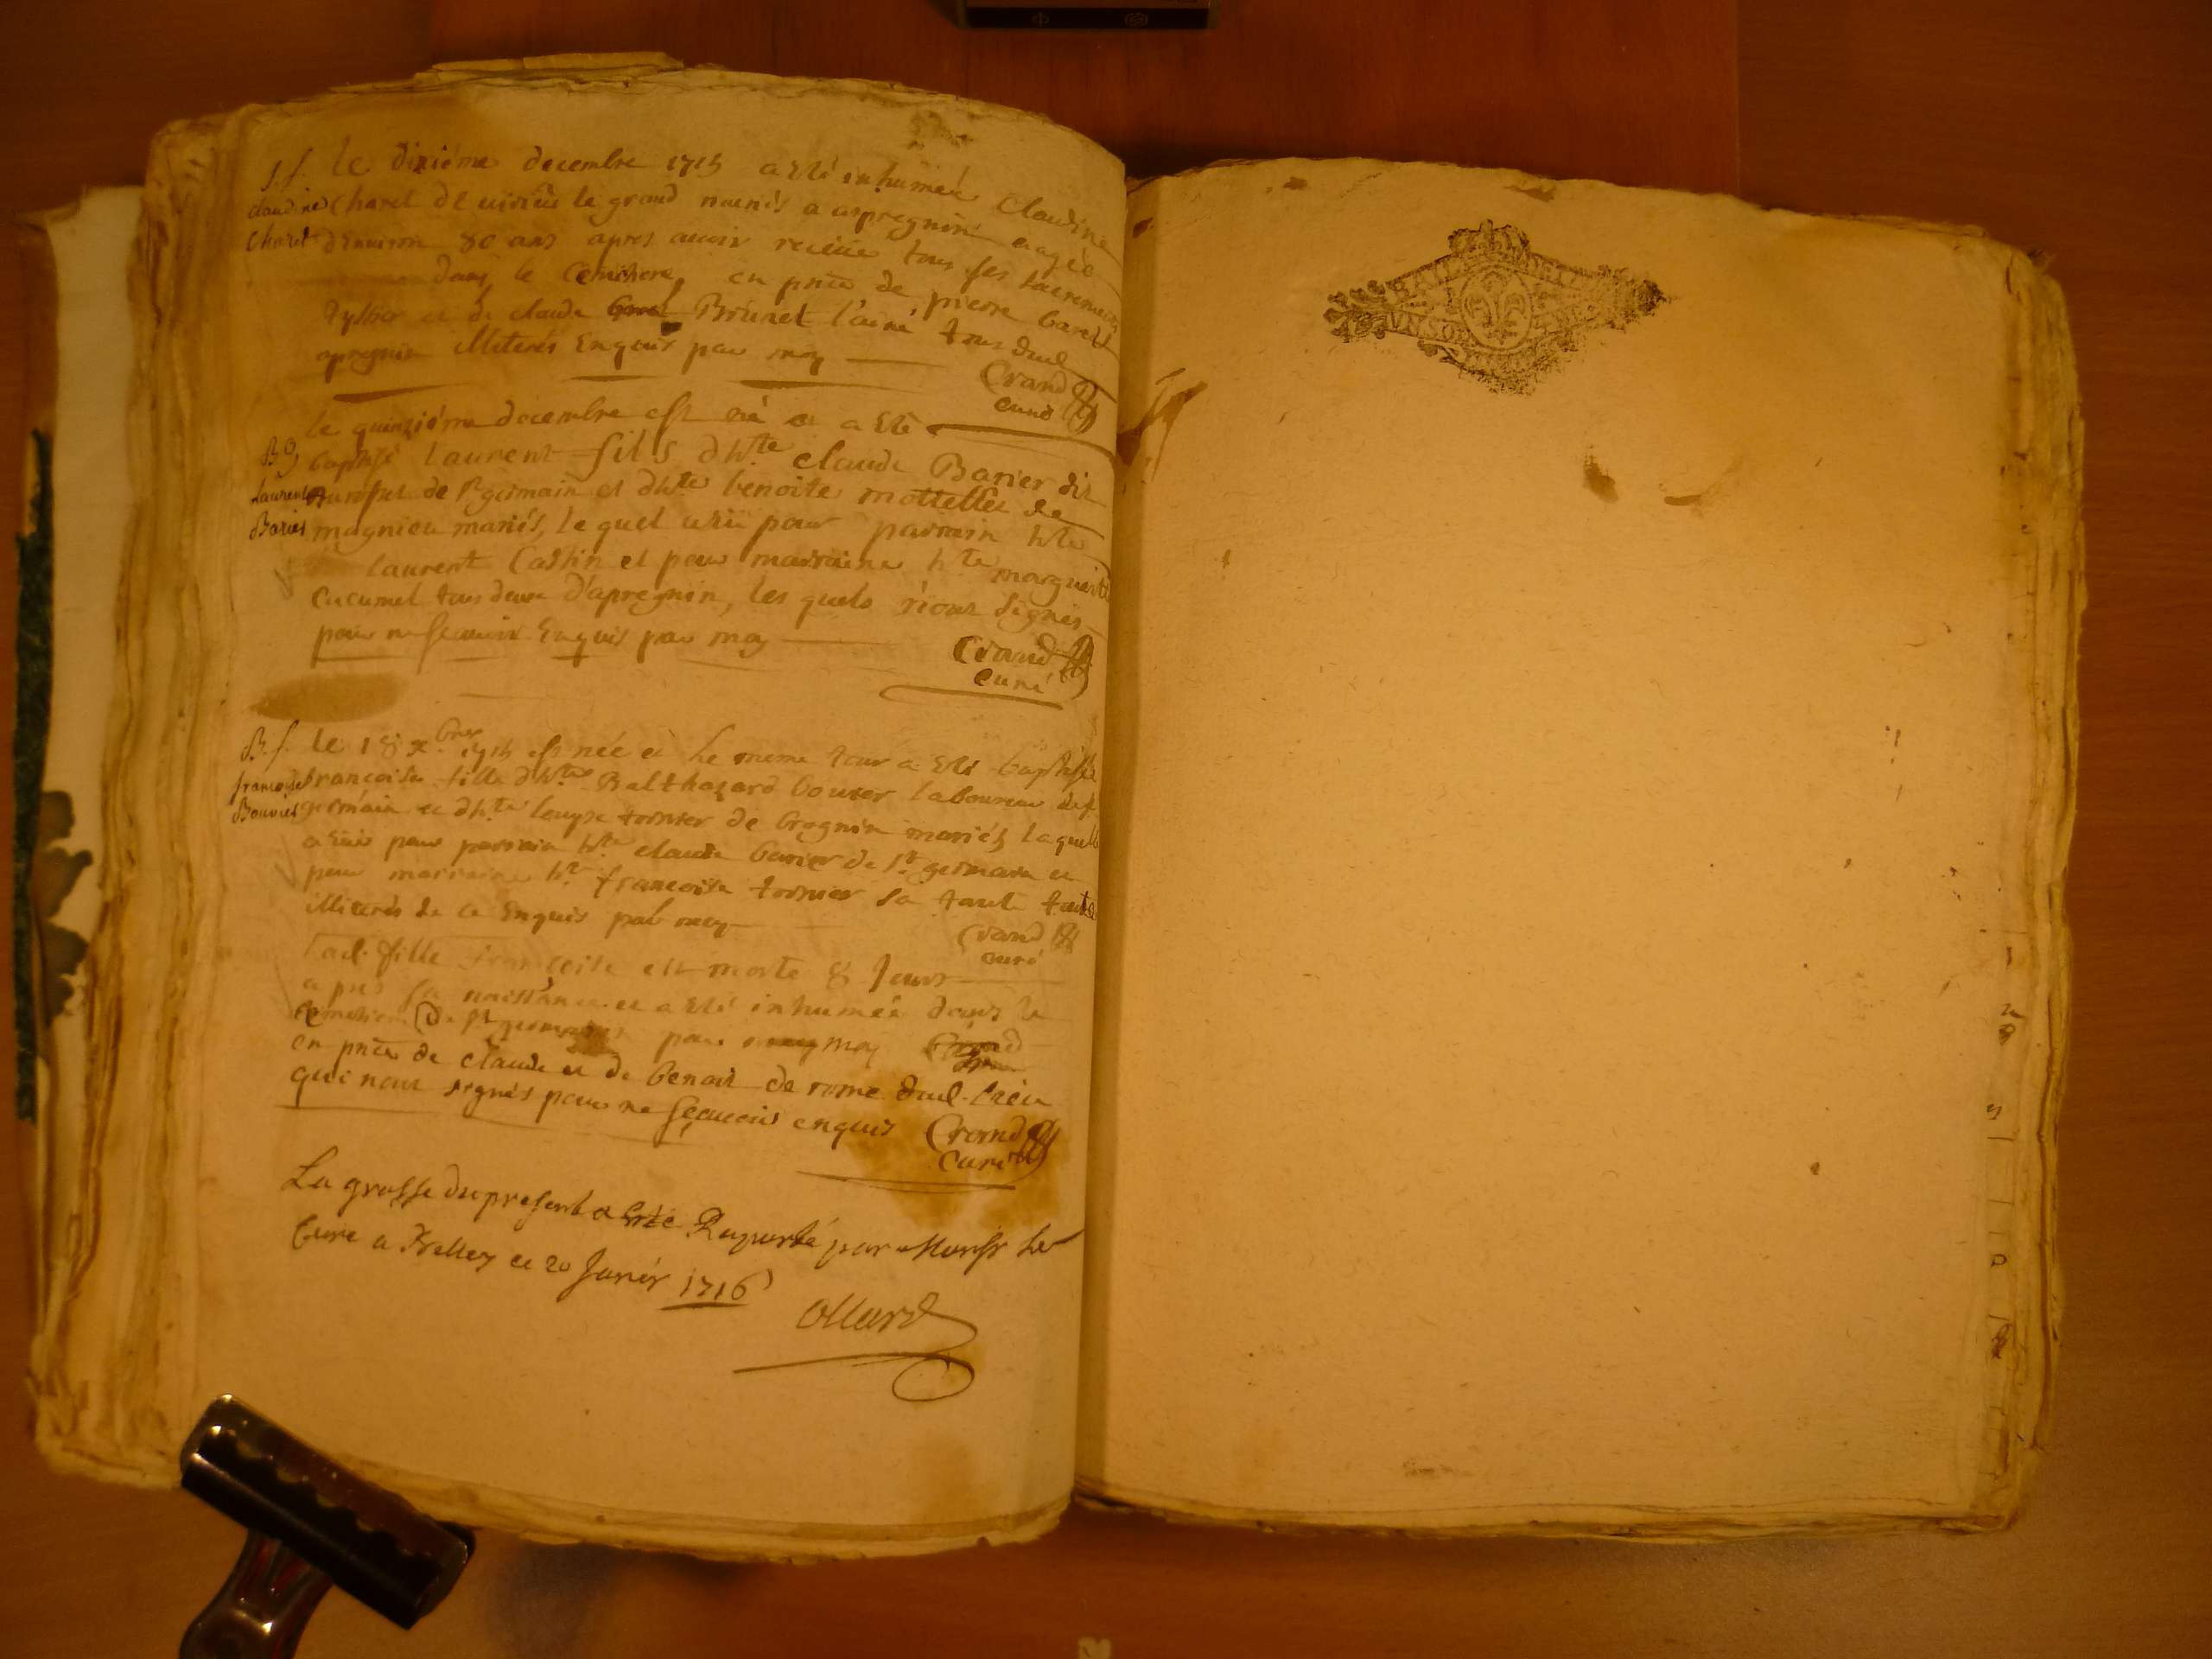 S.f. le dixiéme decembre 1715 a esté inhumeé Claudine
claudine Charet de virieu le grand mariés a apregnin eagée
Charet d'environ 80 ans apres avoir receüe tous ses sacremens
dans le Cemitiere en pnce de pierre baret
et de claude Brunet l'ainé tous dud.
apregnin illiterés Enquis par moy
Crand
curé
le quinziéme decembre est né et a esté
B g baptisé Laurent fils d'hte claude Barier dit
Laurent de st germain et d'hte benoite mottettet de
Barier magnieu mariés, le quel a eu pour parrain hte
laurent Castin et pour marraine hte marguerite
Cucumel tous deux d'apregnin, les quels n'ont signés
pour ne scavoir Enquis par moy
Crand
curé
B.f. le 18 xbre 1715 est née et le meme jour a esté baptisée
francoise francoise fille d'hte Balthazard bouvier laboureur de st
Bouvier germain et d'hte louyse tornier de brognin mariés laquelle
a eu pour parrain hte claude barier de st. germain et
pour marraine hte francoise tornier sa tante touts
illiterés de ce Enquis par moy
Crand
curé
Lad. fille francoise est morte 8 jours
apres sa naissance et a esté inhumeé dans le
cimetiere de st germain par moy
en pnce de claude et de benoit de rome dud. lieu
qui n'ont signés pour ne scavoir enquis
Crand
curé
La grosse du present a esté Raporté par Monsr le
Cure a Belley ce 20 Janier 1716
Ollard